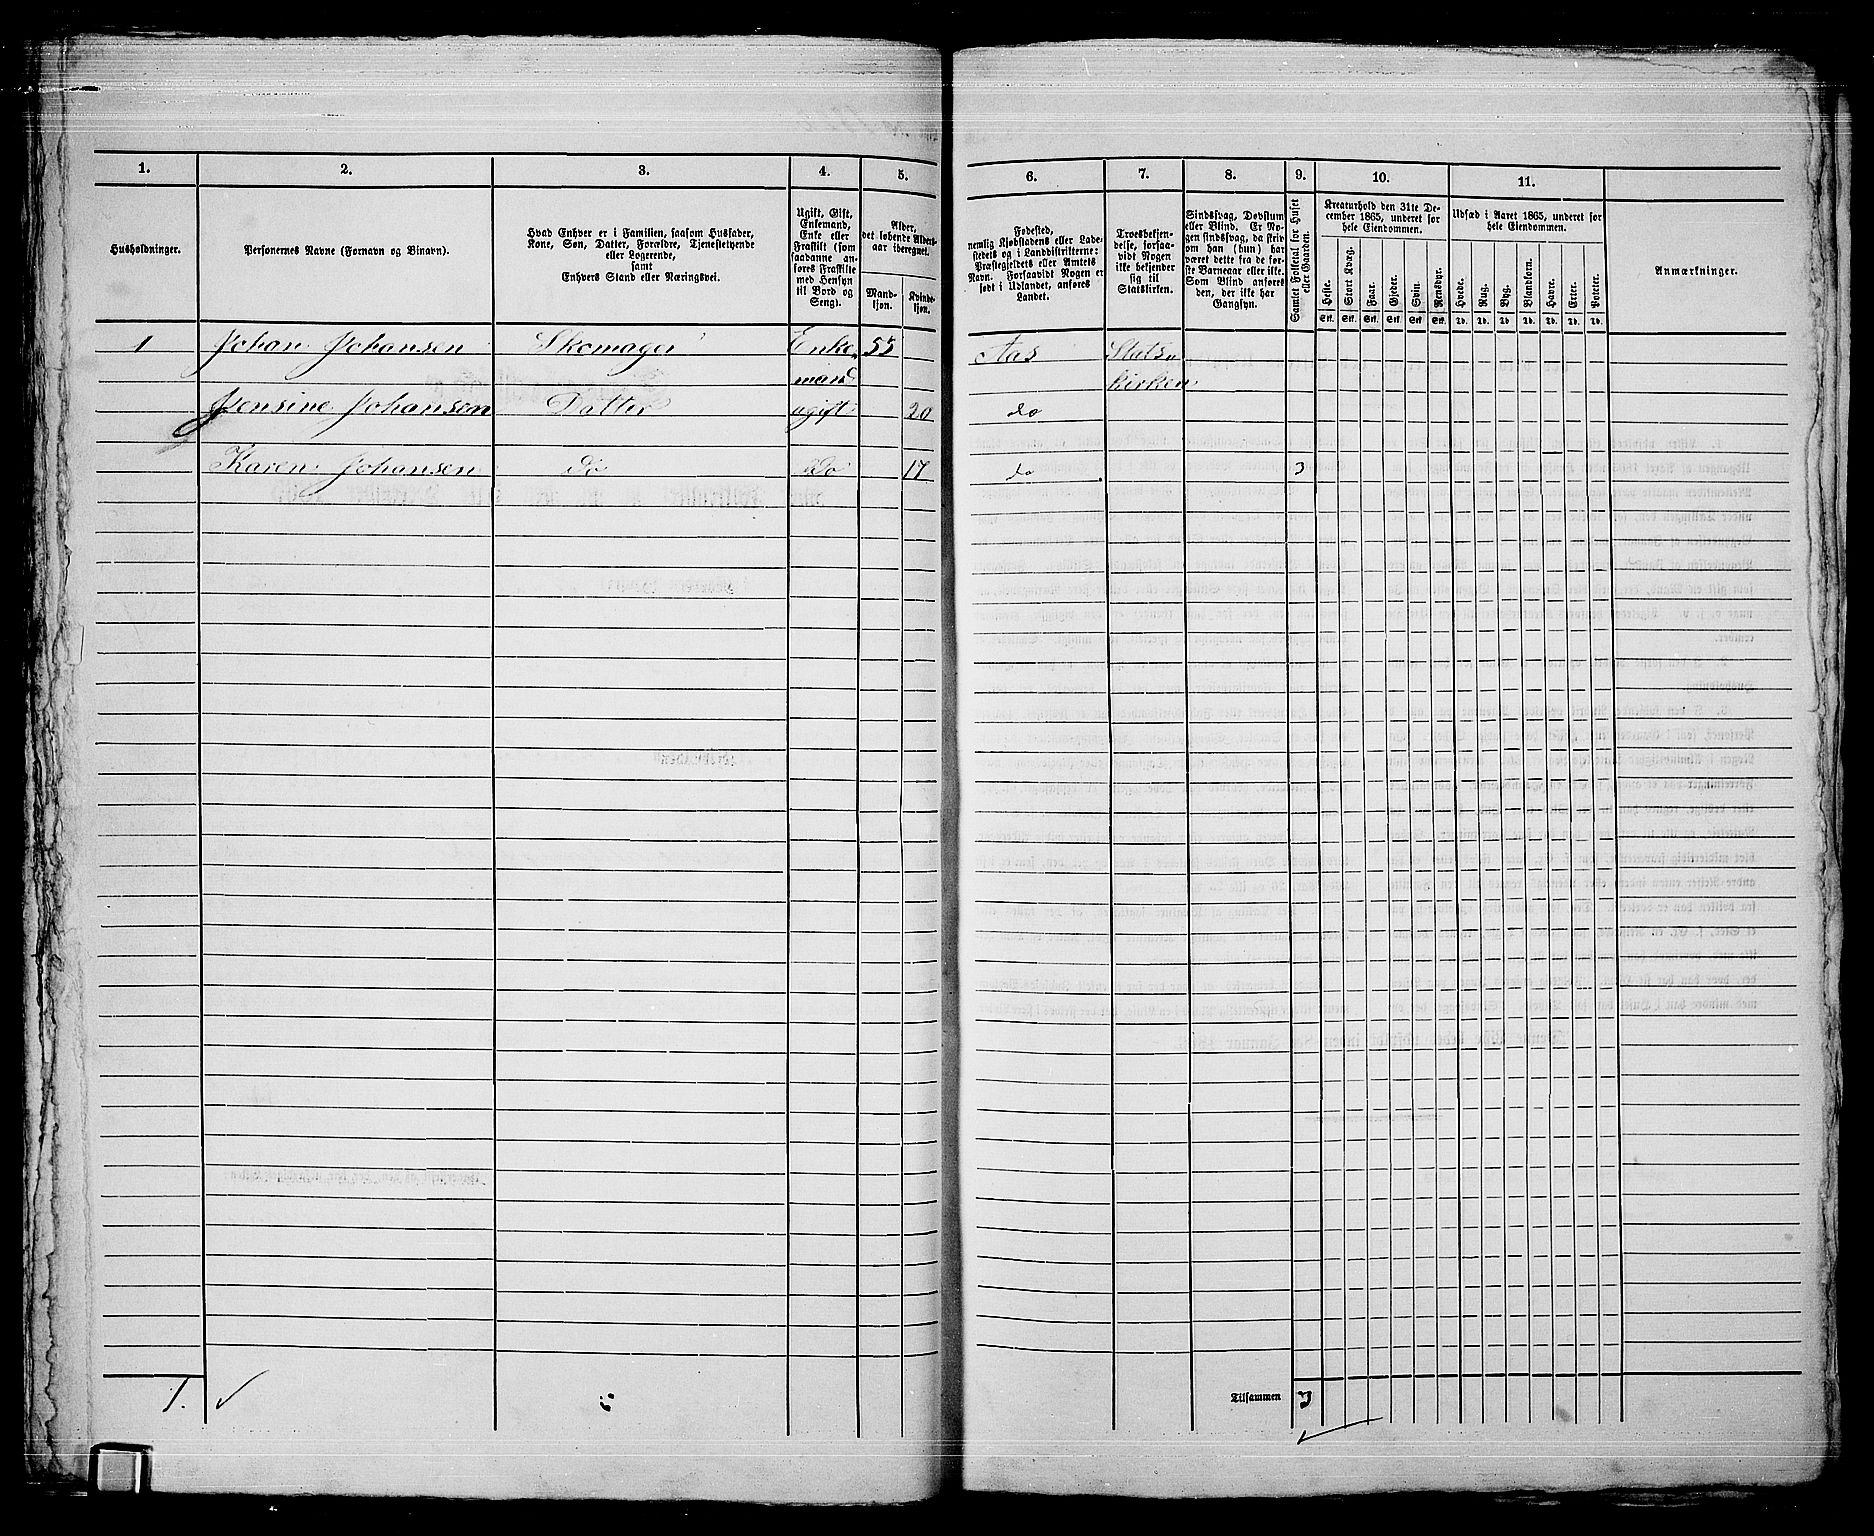 1. 2. 3. 4. 5. 6. 7. 8. 9. 10. 11.
Husholdninger.
Personernes Navne (Fornavn og Binavn).
Hvad Enhver er i Familien, saasom Husfader,
Kone, Søn, Datter, Forældre, Tjenestetyende
eller Logerende,
samt
Enhvers Stand eller Næringsvei.
Ugift, Gift,
Enkemand,
Enke eller
Fraskilt (som
saadanne an-
føres Fraskilte
med Hensyn
til Bord og
Seng).
Alder,
det løbende Alders-
aar iberegnet.
Mand-
kjøn.
Kvinde-
kjøn.
Fødested,
nemlig Kjøbstadens eller Lade-
stedets og i Landdistrikterne:
Præstegjeldets eller Amtets
Navn. Forsaavidt Nogen er
født i Udlandet, anføres
Landet.
Troesbekjen-
delse, forsaa-
vidt Nogen
ikke bekjender
sig til
Statskirken.
Sindssvag, Døvstum
eller Blind. Er No-
gen sindssvag, da skriv
om han (hun) har
været dette fra de før-
ste Barneaar eller ikke.
Som Blind anføres
den, der ikke har
Gangsyn.
Samlet Folketal for Huset
eller Gaarden.
Kreaturhold den 31te De-
cember 1865, underet for
hele Eiendommen.
Heste. Stort Kvæg. Faar. Gjeder. Svin. Rensdyr.
Stk. Stk. Stk. Stk. Stk. Stk.
Udsæd i Aaret 1865, underet for
hele Eiendommen.
Hvede. Rug. Byg. Blandkorn. Havre. Erter. Poteter.
Td. Td. Td. Td. Td. Td. Td.
Anmærkninger.
1 Johan Johansen Skomager Enke 55 Aas Stats
mand kirken
Jensine Johansen Datter ugift 20 do
Karen Johansen do do 17 do 3
1.
Tilsammen 3